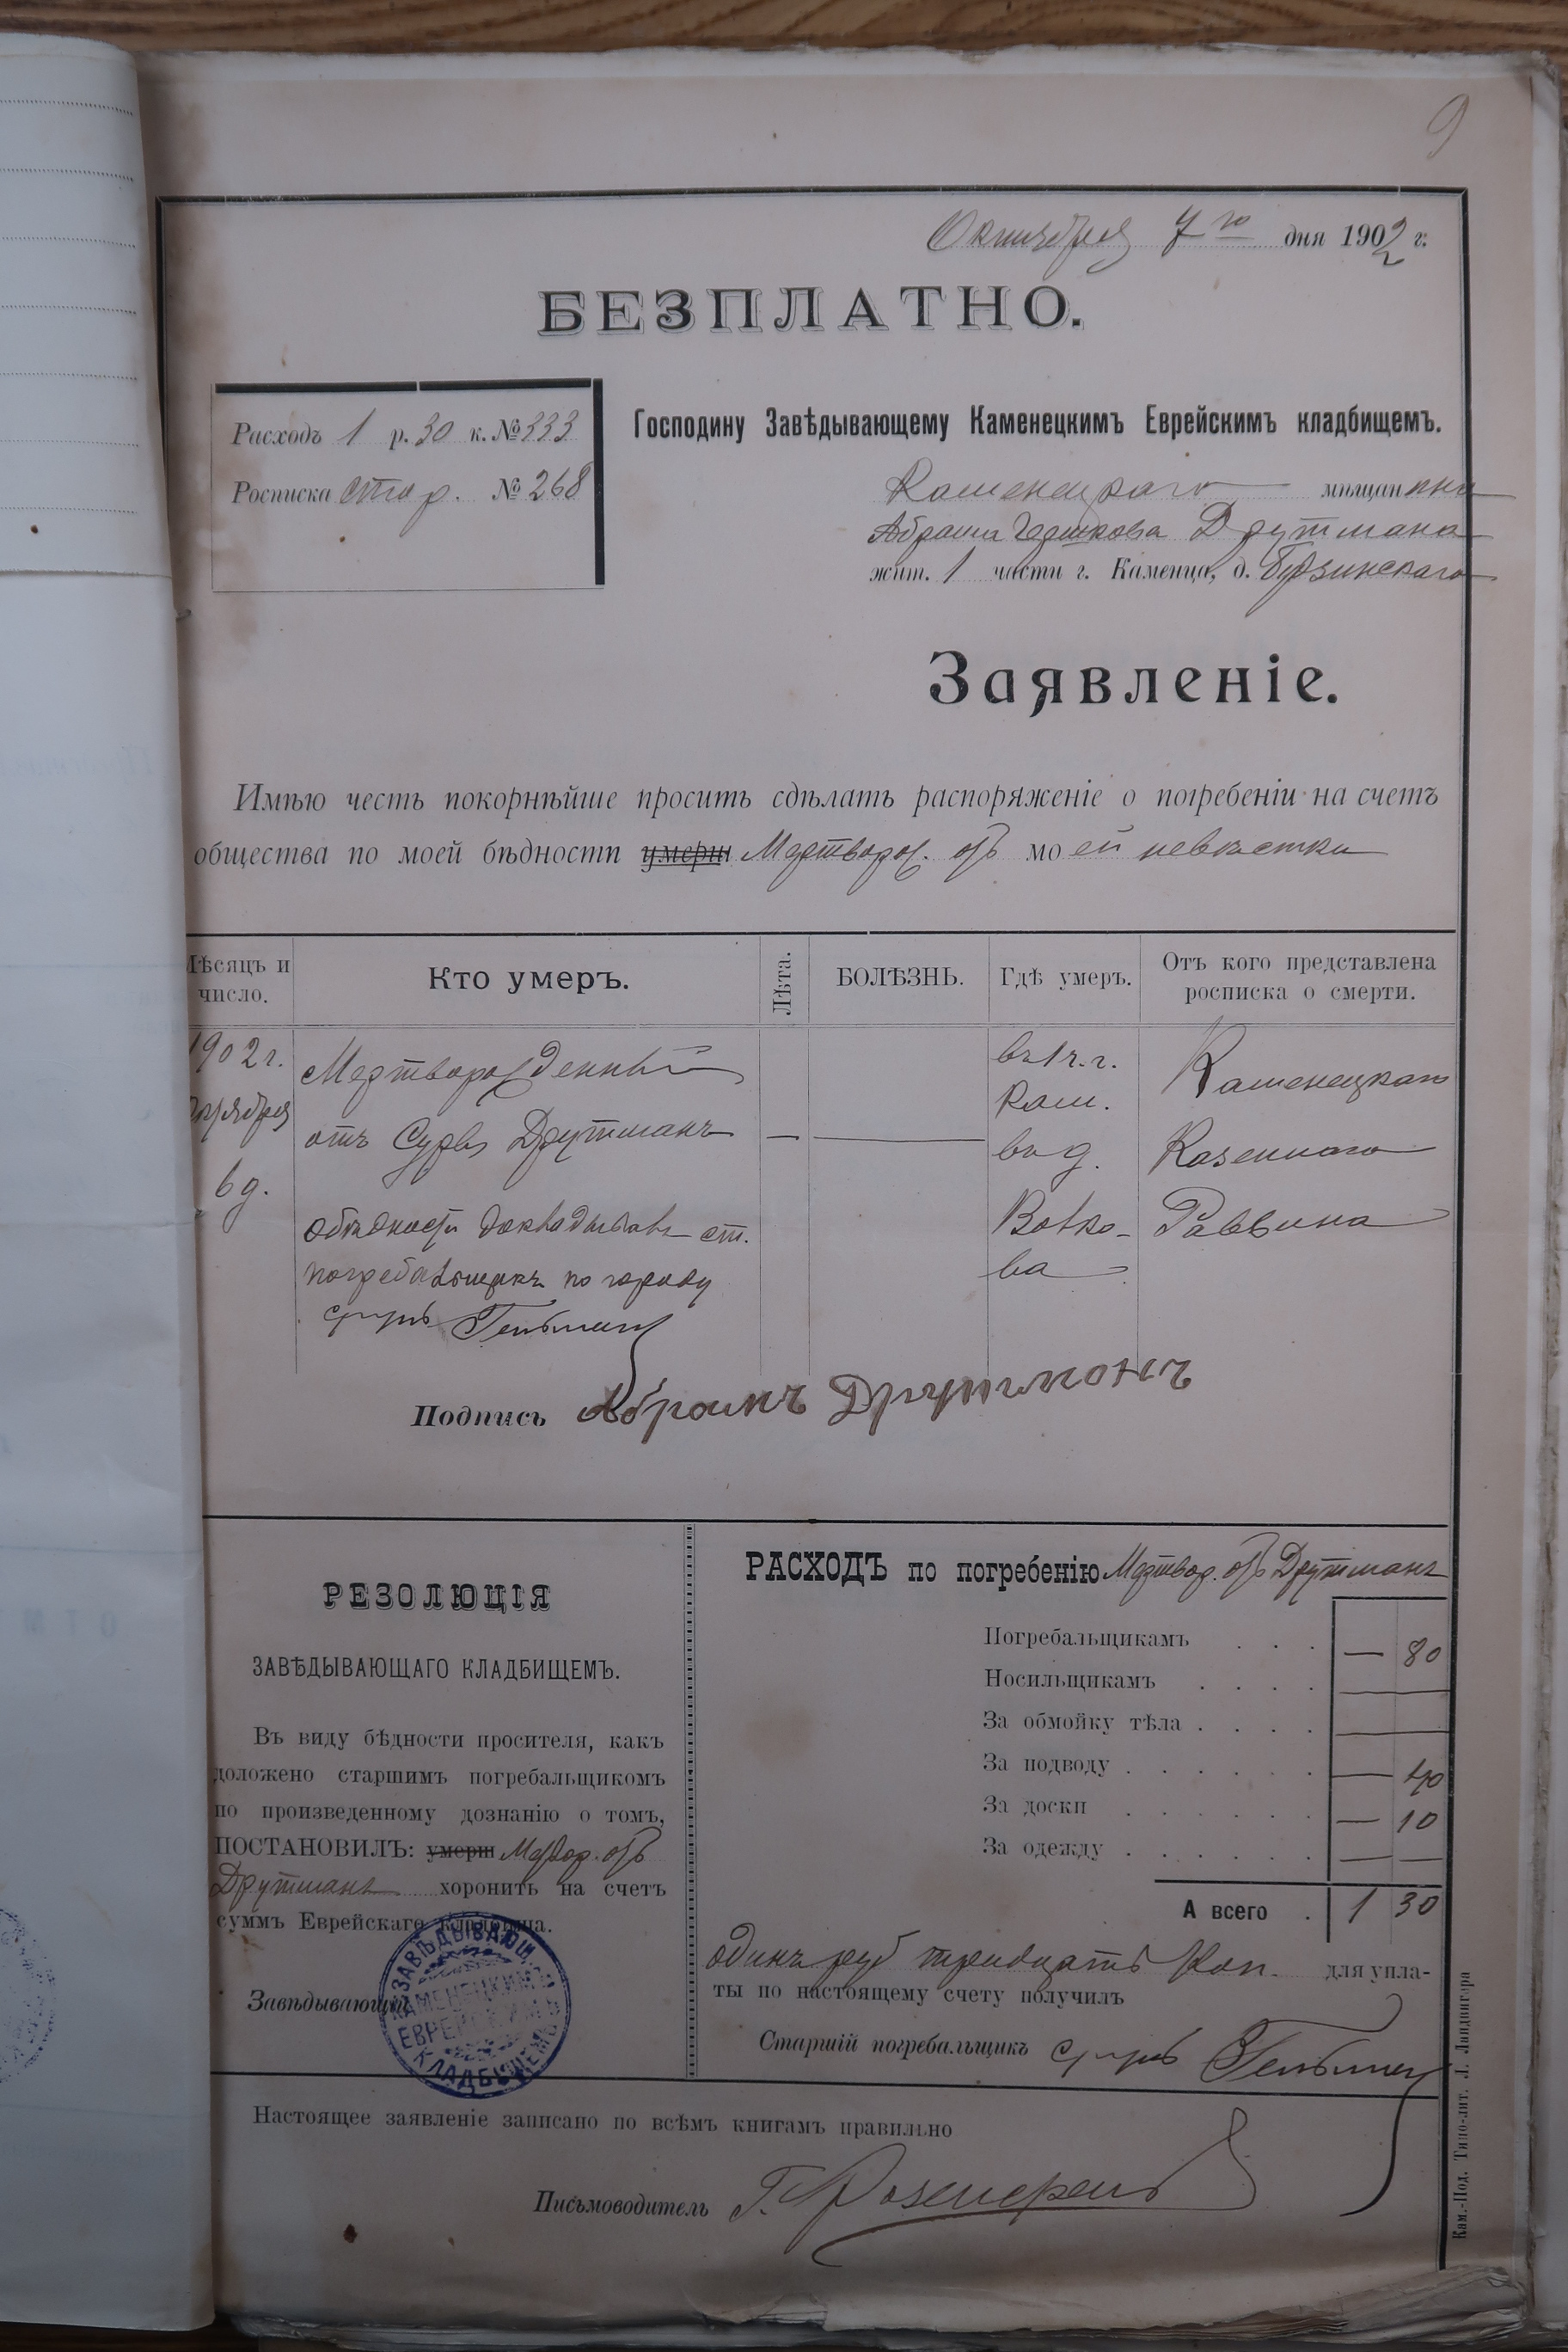 9
Октября 7го дня 1902 г.
БЕЗПЛАТНО.
Расходъ 1 р. 30 к. № 333
Росписка стар. № 268
Господину Завѣдывающему Каменецкимъ Еврейскимъ кладбищемъ.
Каменецкаго мѣщанина
Абрама Гершкова Друтмана
жит. 1 части г. Каменца, д.
Заявленіе.
Имѣю честь покорнѣйше просить сдѣлать распоряженіе о погребеніи на счетъ
общества по моей бѣдности умерш Мертворож. отъ моей невѣстки
Мѣсяцъ и число.
Кто умеръ.
Лѣта.
БОЛѢЗНЬ.
Гдѣ умеръ.
Отъ кого представлена росписка о смерти.
1902 г.
Октября
6 д.
Мертворожденный
отъ Суры Друтманъ
—
—
въ 1 ч. г.
Кам.
въ д.
Волко-
ва
Каменецкаго
Казеннаго
Раввина
о бѣдности докладываетъ ст.
погребальщикъ по городу
Подпись Абрамъ Друтманъ
РЕЗОЛЮЦІЯ
ЗАВѢДЫВАЮЩАГО КЛАДБИЩЕМЪ.
Въ виду бѣдности просителя, какъ
доложено старшимъ погребальщикомъ
по произведенному дознанію о томъ,
ПОСТАНОВИЛЪ: умерш отъ
Друтманъ хоронить на счетъ
суммъ Еврейскаго кладбища.
Завѣдывающій
ЗАВѢДЫВАЮЩ
КАМЕНЕЦКИМЪ
ЕВРЕЙСКИМЪ
КЛАДБИЩЕМЪ
РАСХОДЪ по погребенію Мертвор. отъ Друтманъ
Погребальщикамъ . . . — 80
Носильщикамъ . . . . — —
За обмойку тѣла . . . . — —
За подводу . . . . . . — 40
За доски . . . . . . — 10
За одежду . . . . . . — —
А всего . 1 30
одинъ руб тридцать коп. для упла-
ты по настоящему счету получилъ
Старшій погребальщикъ
Настоящее заявленіе записано по всѣмъ книгамъ правильно
Письмоводитель Г.
Кам.-Под. Типо-лит. Л. Ландвигера